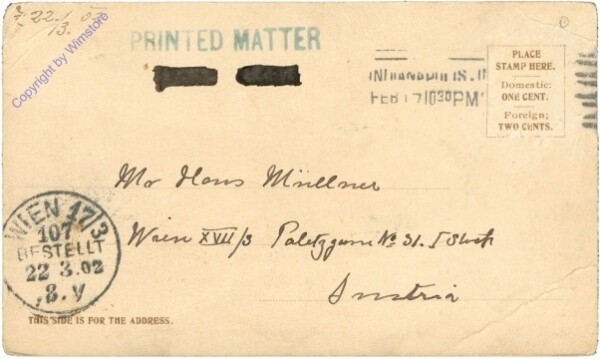 22./1.
13.
Copyright by Wimstore
PRINTED MATTER
INDIANAPOLIS. I
FEB 17 1030 PM
PLACE
STAMP HERE.
Domestic:
ONE CENT.
Foreign;
TWO CENTS.
Mr Hans Müllner
Wien XVII/3 No 31. I
Austria
WIEN 17/3
107
BESTELLT
22 3.02
.8.V
THIS SIDE IS FOR THE ADDRESS.